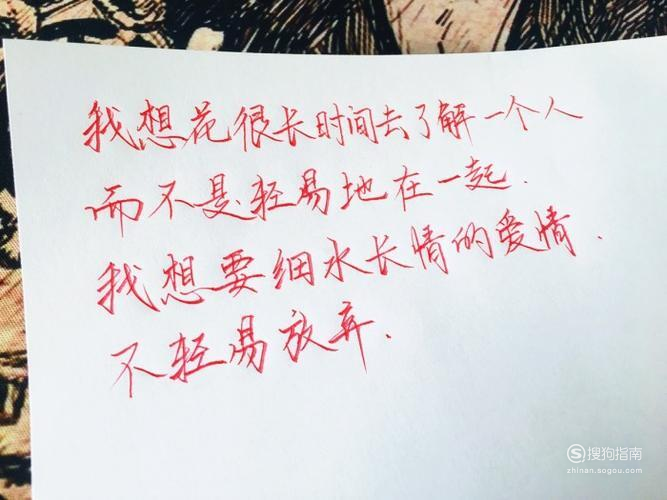 我想花很长时间去了解一个人
而不是轻易地在一起.
我想要细水长情的爱情.
不轻易放弃.
搜狗指南
zhinan.sogou.com